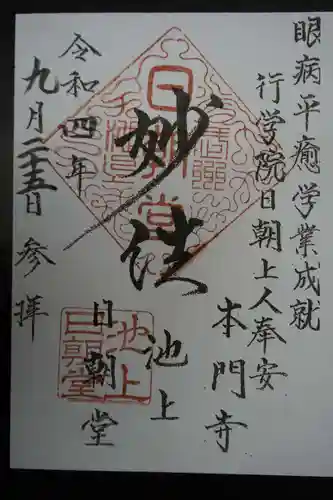 眼病平癒学業成就
行学院日朝上人奉安
本門寺
池上
妙法
日朝堂
令和四年
九月二十五日 参拝
池上
日朝堂